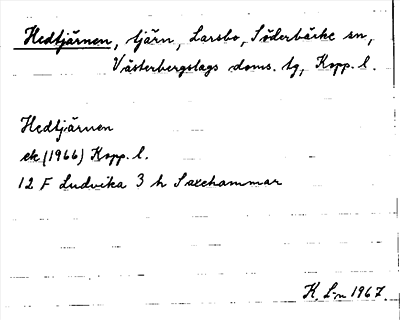 Hedtjärnen, tjärn, Larsbo, Söderbärke sn,
Västerbergslags doms. tg, Kopp. l.
Hedtjärnen
ek (1966) Kopp. l.
12 F Ludvika 3 h Saxehammar
K. L-n 1967.